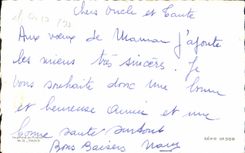 Chers Oncle et Tante
Aux vœux de Maman j'ajoute
les miens très sincères. Je
vous souhaite donc une bonne
et heureuse année et une
bonne santé surtout
Bons Baisers